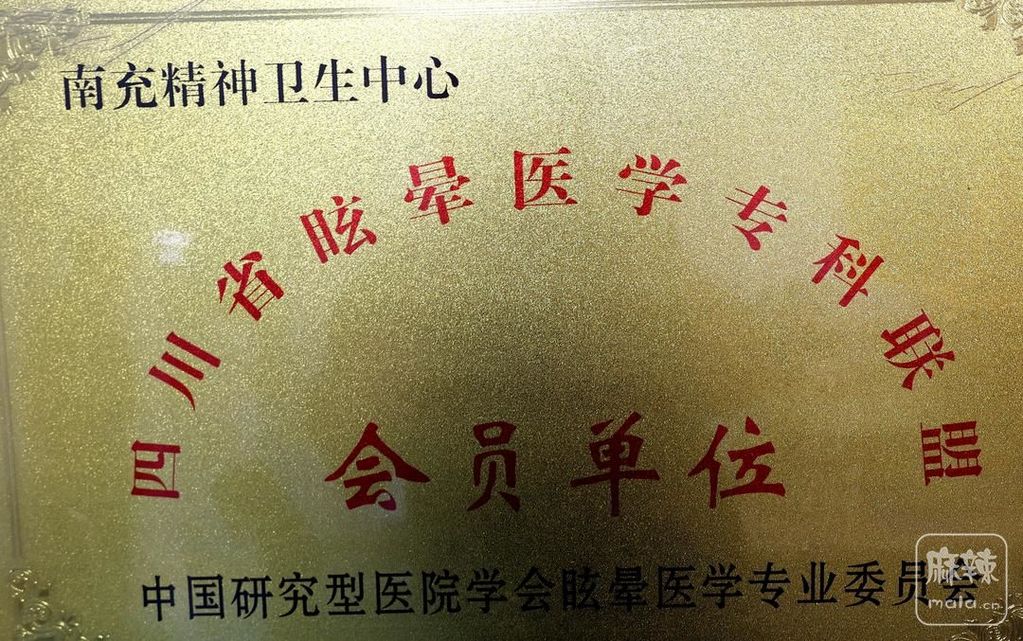 南充精神卫生中心
四川省眩晕医学专科联盟
会员单位
中国研究型医院学会眩晕医学专业委员会
麻辣
mala.cn